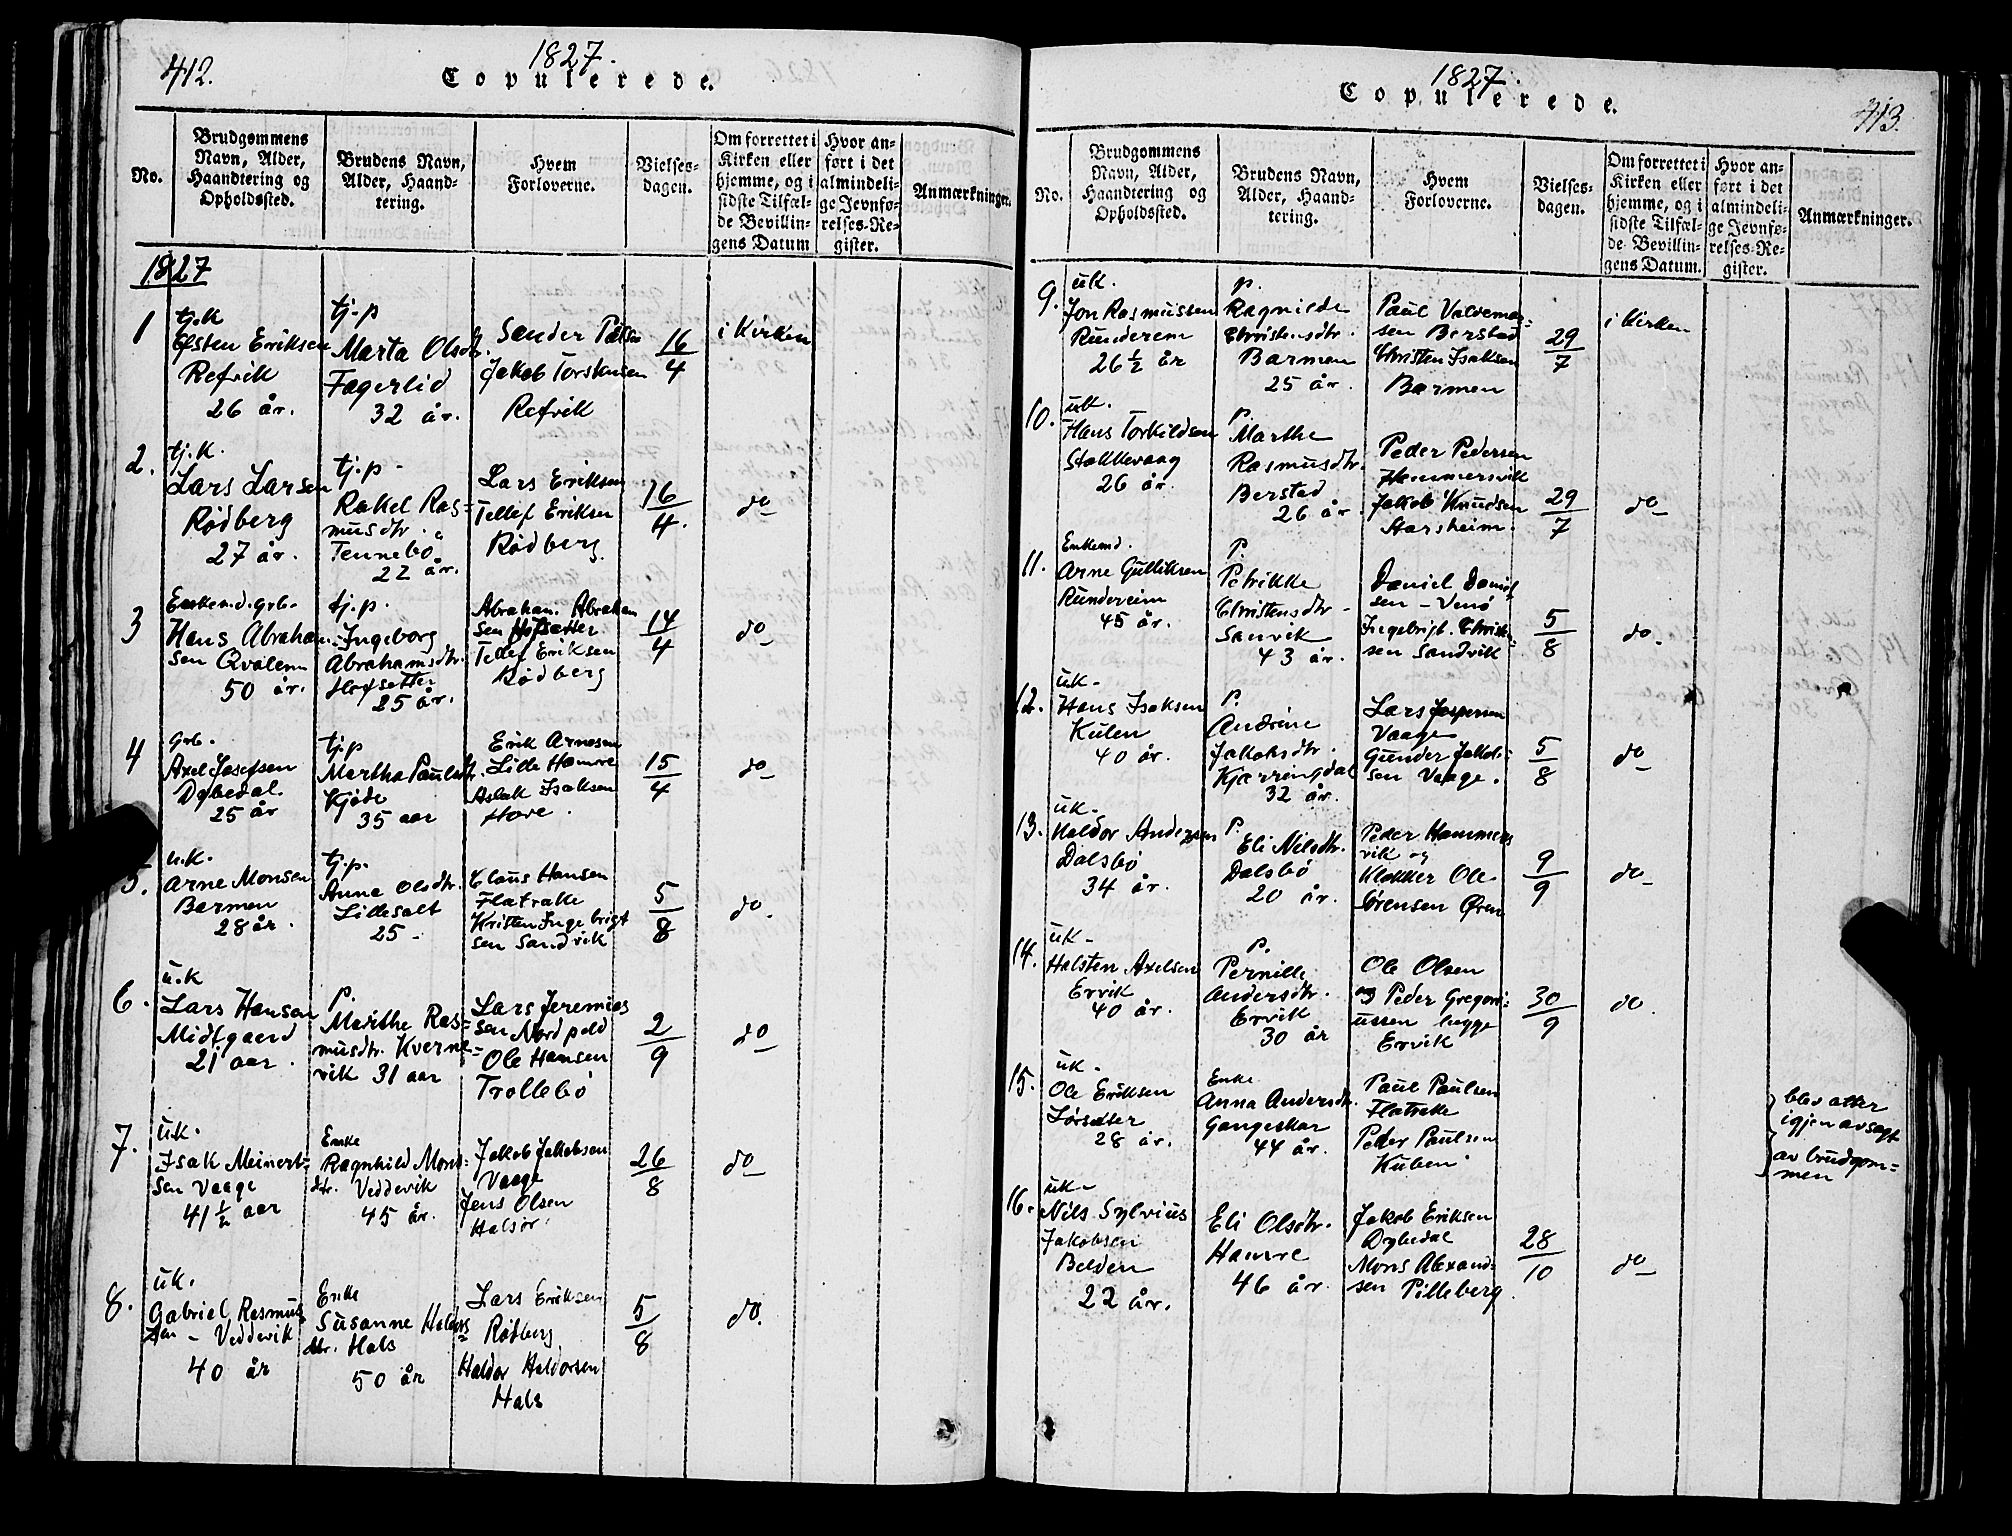 412.
1827.
Copulerede.
No.
Brudgommens
Navn, Alder,
Haandtering og
Opholdssted.
Brudens Navn,
Alder, Haand-
tering.
Hvem
Forloverne.
Vielses-
dagen.
Om forrettet i
Kirken eller
hjemme, og i
sidste Tilfæl-
de Bevillin-
gens Datum
Hvor an-
ført i det
almindeli-
ge Jevnfø-
relses-Re-
gister.
Anmærkninger.
1827
1
tj.k
Østen Eriksen
Refvik
26 år.
tj.p
Marta Olsdtr.
Fagerlid
32 år.
Sander
Jakob Torstensen
Refvik
16/4
i Kirken
2.
tj.k.
Lars Larsen
Rødberg
27 år.
tj.p.
Rakel Ras=
musdtr.
Tennebø
22 år.
Lars Eriksen
Tellef Eriksen
Rødberg
16/4.
do
3
Enkemd. grb.
Hans Abraham-
sen Qvalem
50 år.
tj.p.
Ingeborg
Abrahamsdtr.
Hofsetter
25 år.
Abraham. Abraham
sen Hofsetter
Tellef Eriksen
Rødberg
14/4
do
4
grb.
Axel Josefsen
Dybedal
25 år
tj.p
Martha Paulsdtr.
Kjøde
35 aar
Erik Arnesen
Lille Hamre
Aslak Isaksen
Hove.
15/4
do
5.
u.k.
Arne Monsen
Barmen
28 år.
tj.p.
Anne Olsdtr.
Lillesalt
25 -
Claus Hansen
Flatrake
Kristen Ingebrigt
sen Sandvik
5/8
do.
6.
u.k
Lars Hansen
Midtgaard
21 aar.
p.
Marthe Ras=
musdtr. Kverne=
vik 31 aar
Lars Jeremias
sen Nordpold
Ole Hansen
Trollebø
2/9
do
7.
uk.
Isak Meinert-
sen Vaage
41 1/2 aar
Enke
Ragnhild Mons=
dtr. Veddevik
45 år.
Jakob Jakobsen
Vaage
Jens Olsen
Halsør.
26/8
do
8.
uk.
Gabriel Rasmus
sen - Veddevik
40 år
Enke
Susanne Halvors
dtr. Hals
50 år
Lars Eriksen
Rødberg
Haldor Haldorsen
Hals
5/8
do.
1827.
Copulerede.
413.
No.
Brudgommens
Navn, Alder,
Haandtering og
Opholdssted.
Brudens Navn,
Alder, Haand-
tering.
Hvem
Forloverne.
Vielses-
dagen.
Om forrettet i
Kirken eller
hjemme, og i
sidste Tilfæl-
de Bevillin-
gens Datum.
Hvor an-
ført i det
almindeli-
ge Jevnfø-
relses-Re-
gister.
Anmærkninger.
9.
uk.
Jon Rasmussen
Runderem
26 1/2 år
p.
Ragnilde
Christensdtr.
Barmen
25 år.
Paul Valdemar-
sen Berstad
Christen Isaksen
Barmen
29/7
i Kirken
10.
uk.
Hans Torkildsen
Stokkevaag
26 år.
p.
Marthe
Rasmusdtr.
Berstad
26 år.
Peder Pedersen
Hammersvik
Jakob Knudsen
Aarsheim.
29/7
do
11.
Enkemd.
Arne Gulliksen
Rundereim
45 år.
P.
Petrikke
Christensdtr.
Sanvik
43 år.
Daniel Daniel
sen - Venø
Ingebrigt. Christen-
sen Sandvik
5/8
do.
12.
uk.
Hans Isaksen
Kulen
40 år.
P.
Andrine
Jakobsdtr.
Kjærringdal
32 år.
Lars Jespersen
Vaage
Gunder Jakob-
sen Vaage.
5/8
do
13.
uk.
Haldor Andersen
Dalsbø
34 år.
P.
Eli Nilsdtr.
Dalsbø
20 år.
Peder Hammers
vik og
Klokker Ole
Sørensen Øren
9/9
do
14.
uk.
Halsten Axelsen
Ervik
40 år.
P.
Pernille
Andersdtr.
Ervik
30 år
Ole Olsen
og Peder Gregori-
ussen begge
Ervik
30/9
do.
15.
uk.
Ole Eriksen
Lørsetter
28 år.
Enke
Anna Andersdtr.
Gangeskar
44 år.
Paul Paulsen
Flatrake
Peder Paulsen
Kuben
blev atter
igjen avsagt
av brudgom=
men
16.
uk.
Nils Sylvius
Jakobsen
Belden
22 år.
Eli Olsdtr.
Hamre
46 år.
Jakob Eriksen
Dybedal
Mons Alexand-
sen Pilleberg.
28/10
do